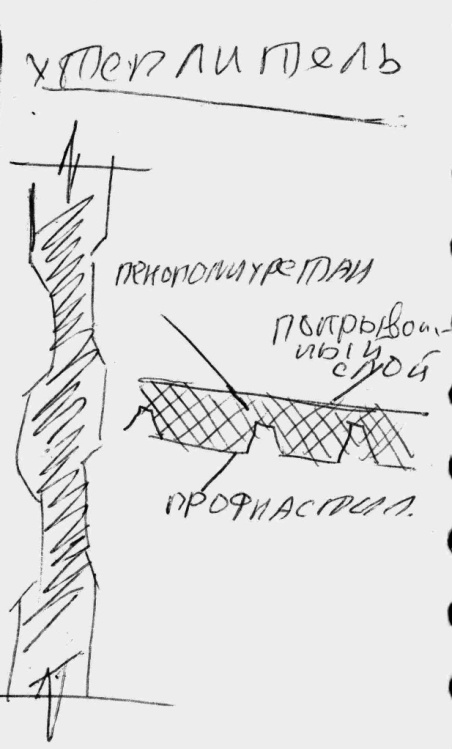 утеплитель
пенополиуретан
покрывоч-
ный
слой
профнастил.